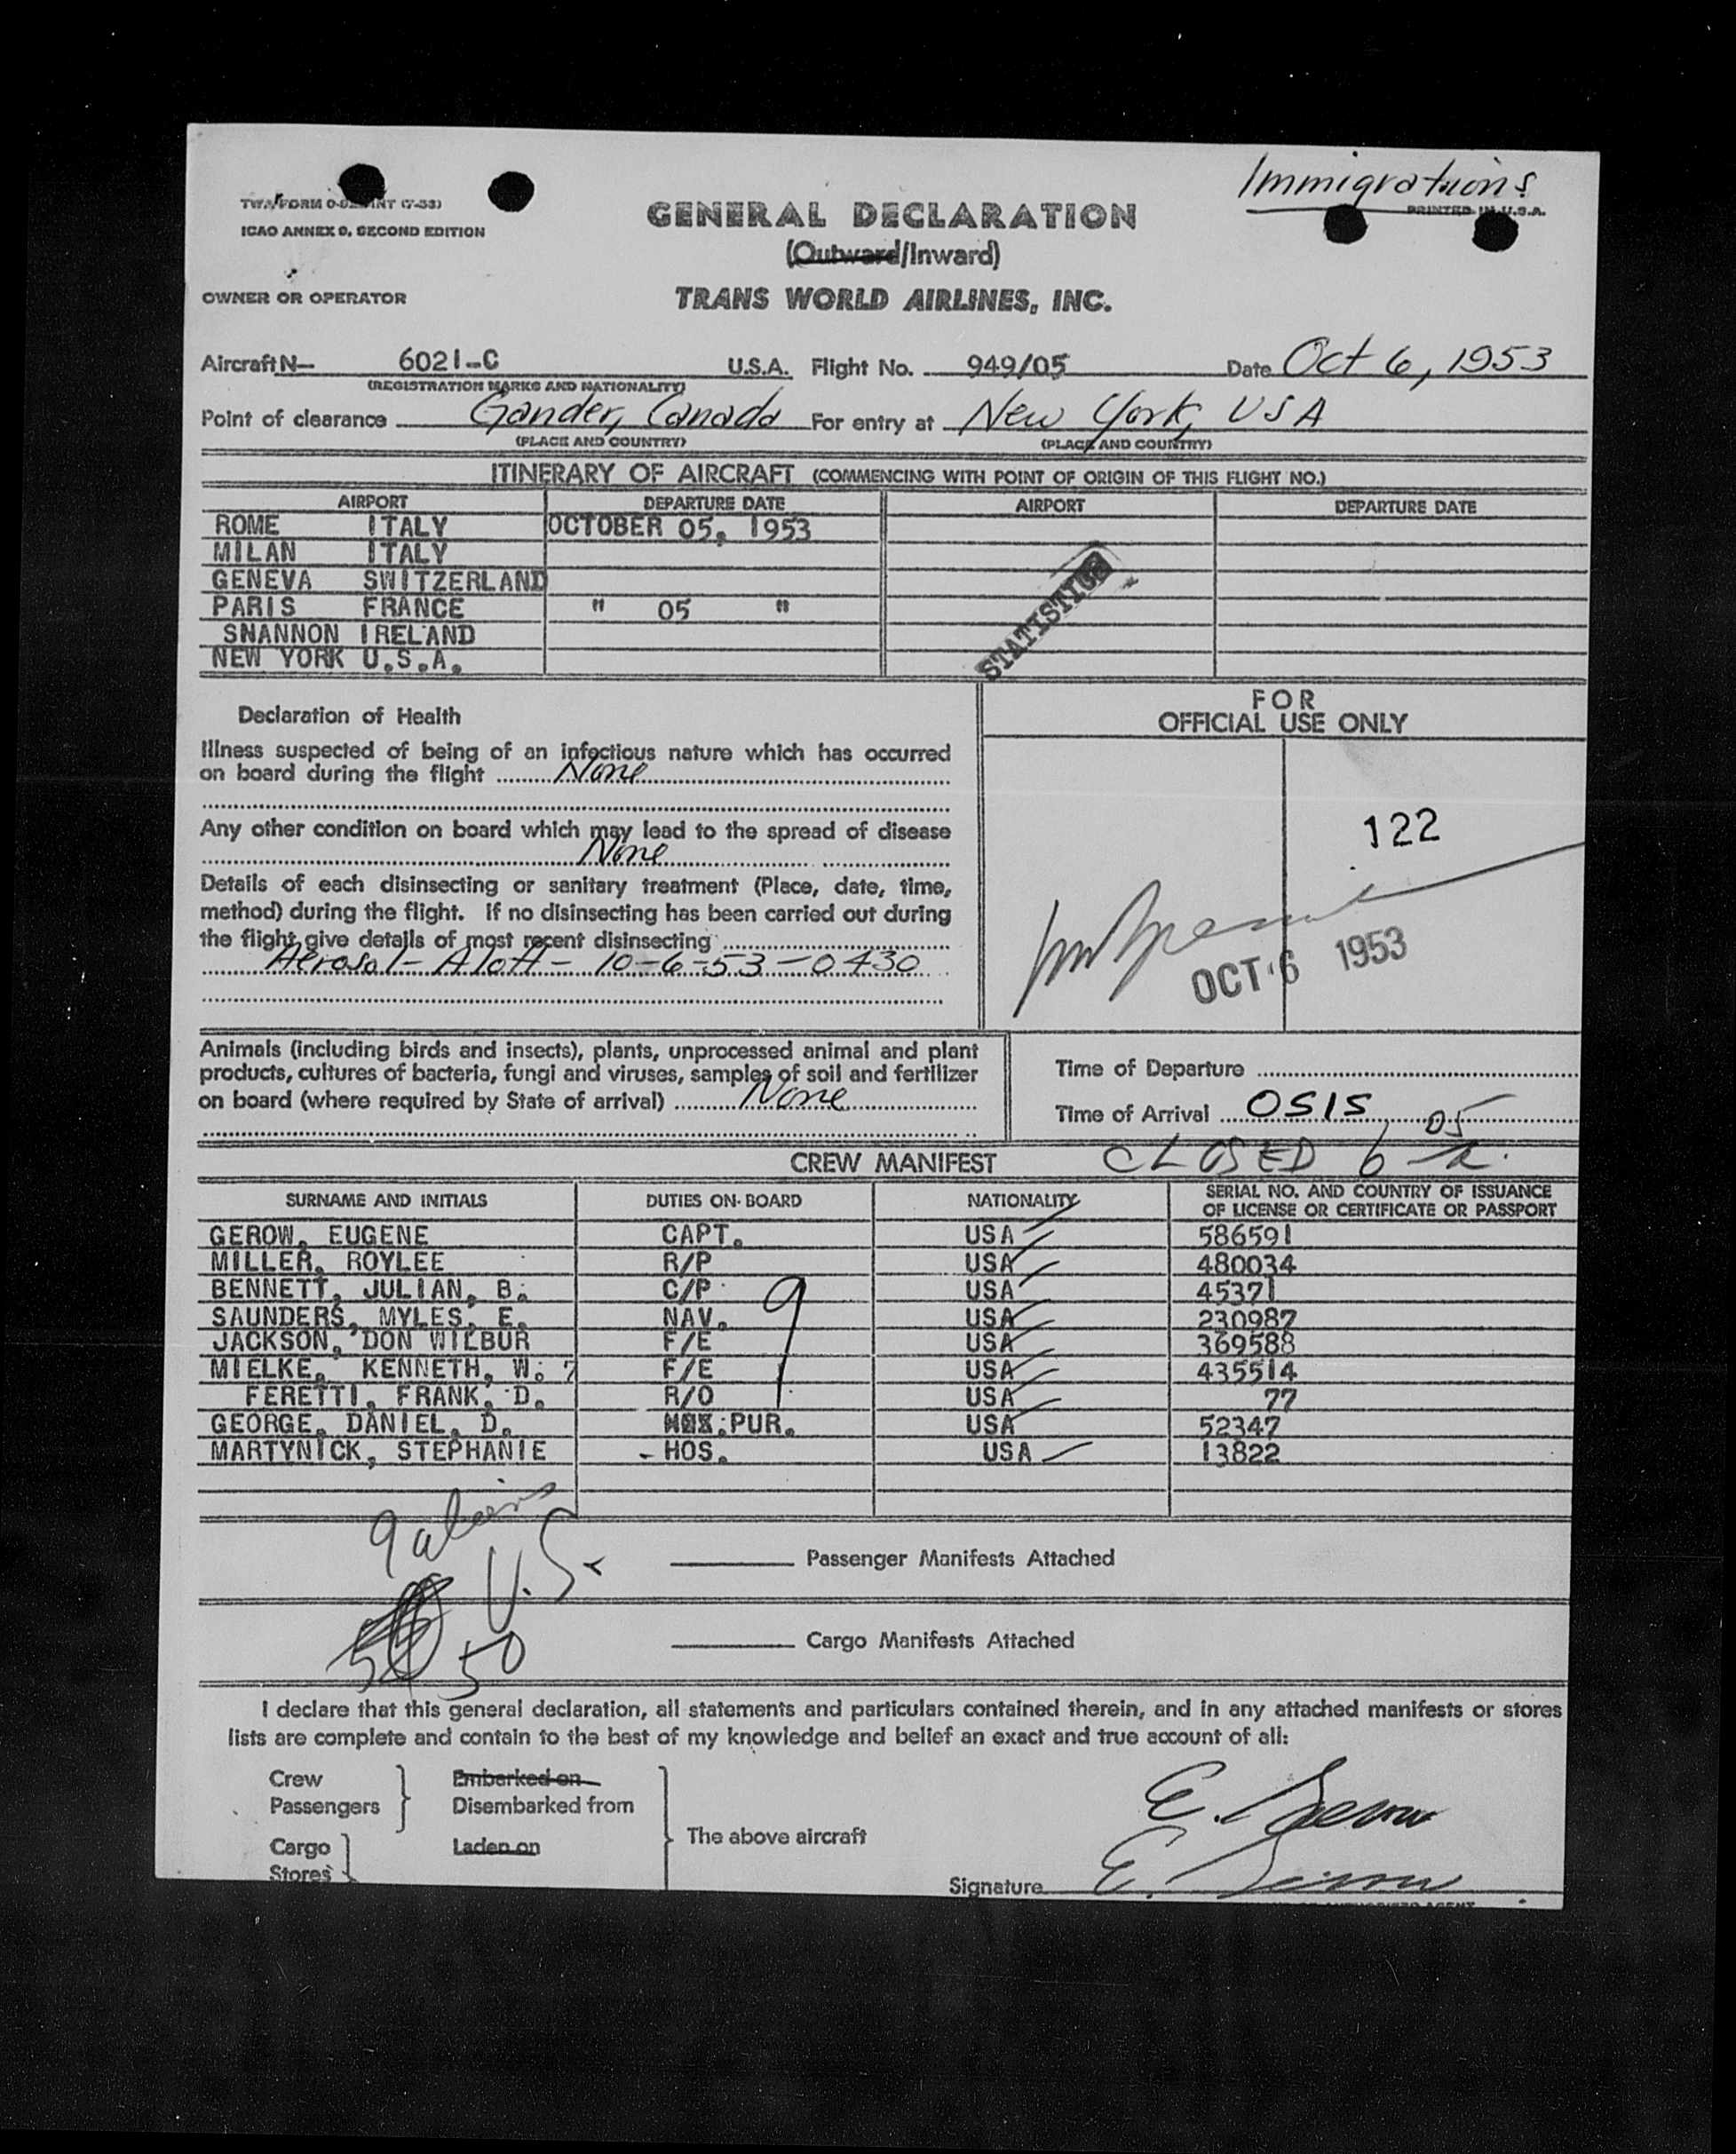 Immigrations
TWA FORM O-8 INT (7-53)
PRINTED IN U.S.A.
ICAO ANNEX 9, SECOND EDITION
GENERAL DECLARATION
(Outward/Inward)
OWNER OR OPERATOR
TRANS WORLD AIRLINES, INC.
Aircraft N— 6021-C U.S.A. Flight No. 949/05 Date Oct 6, 1953
(REGISTRATION MARKS AND NATIONALITY)
Point of clearance Gander, Canada For entry at New York, USA
(PLACE AND COUNTRY) (PLACE AND COUNTRY)
ITINERARY OF AIRCRAFT (COMMENCING WITH POINT OF ORIGIN OF THIS FLIGHT NO.)
AIRPORT DEPARTURE DATE AIRPORT DEPARTURE DATE
ROME ITALY OCTOBER 05, 1953
MILAN ITALY
GENEVA SWITZERLAND
PARIS FRANCE " 05 "
SNANNON IRELAND
NEW YORK U.S.A.
STATISTICS
Declaration of Health
FOR
OFFICIAL USE ONLY
Illness suspected of being of an infectious nature which has occurred
on board during the flight None
Any other condition on board which may lead to the spread of disease
None
Details of each disinsecting or sanitary treatment (Place, date, time,
method) during the flight. If no disinsecting has been carried out during
the flight give details of most recent disinsecting
Aerosol - Aloft - 10-6-53 - 0430
122
OCT 6 1953
Animals (including birds and insects), plants, unprocessed animal and plant
products, cultures of bacteria, fungi and viruses, samples of soil and fertilizer
on board (where required by State of arrival) None
Time of Departure
Time of Arrival 0515
CREW MANIFEST CLOSED 6 05
SURNAME AND INITIALS DUTIES ON BOARD NATIONALITY SERIAL NO. AND COUNTRY OF ISSUANCE
OF LICENSE OR CERTIFICATE OR PASSPORT
GEROW, EUGENE CAPT. USA 586591
MILLER, ROYLEE R/P USA 480034
BENNETT, JULIAN, B. C/P USA 45371
SAUNDERS, MYLES, E. NAV. USA 230987
JACKSON, DON WILBUR F/E USA 369588
MIELKE, KENNETH, W. 7 F/E USA 435514
FERETTI, FRANK, D. R/O USA 77
GEORGE, DANIEL, D. PUR. USA 52347
MARTYNICK, STEPHANIE - HOS. USA 13822
9
9 aliens
U.S.
50
Passenger Manifests Attached
Cargo Manifests Attached
I declare that this general declaration, all statements and particulars contained therein, and in any attached manifests or stores
lists are complete and contain to the best of my knowledge and belief an exact and true account of all:
Crew Embarked on
Passengers Disembarked from
The above aircraft
Cargo Laden on
Stores
E. Gerow
Signature E. Gerow